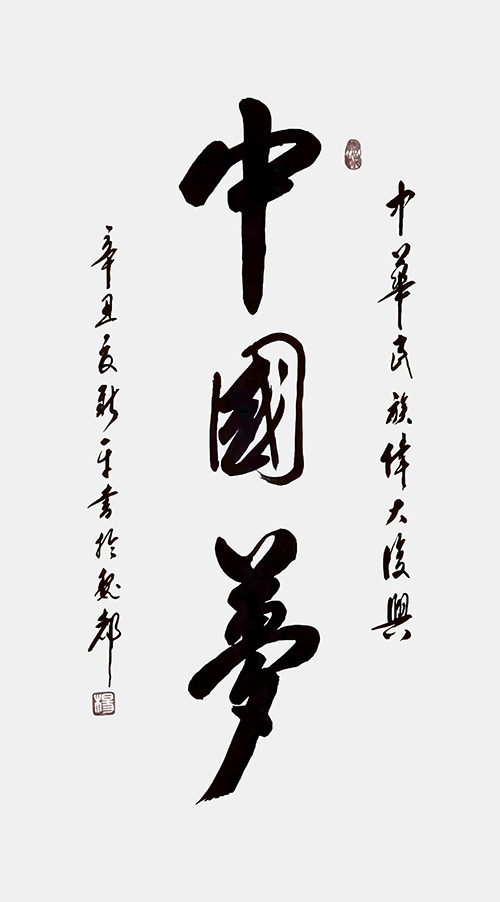 中華民族偉大復興
中國夢
辛丑夏新平書於魏都
楊